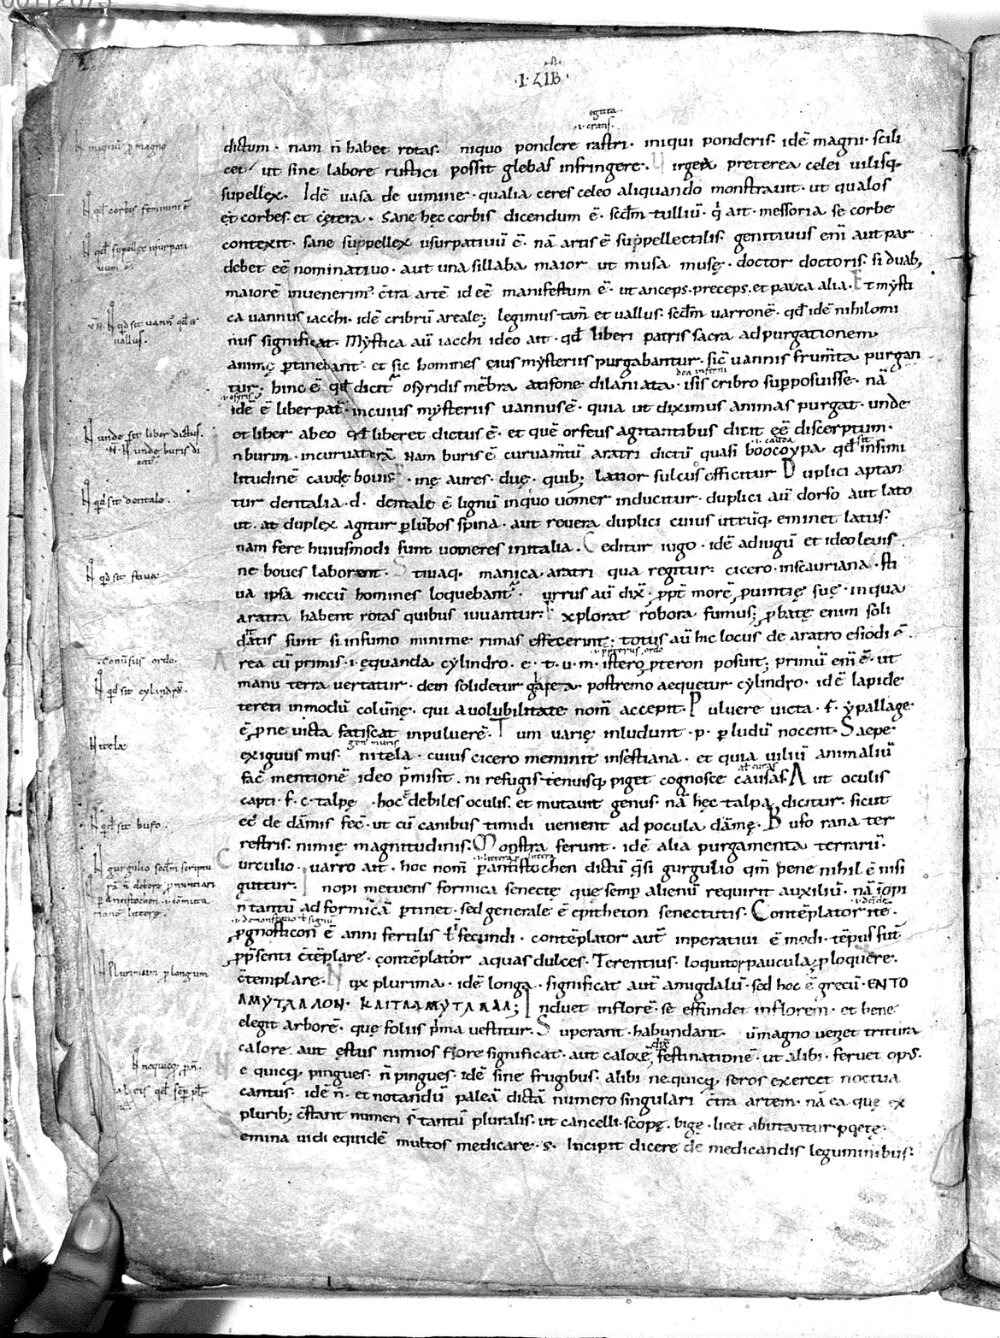 ·I· LIB·
egitta.
.i. crans.
dictum · nam n̄ habet rotas. niquo pondere rastri. iniqui ponderis. idē magni · scili
cet / ut sine labore rustici possit glebas infringere. irgea preterea celei uilisq·
supellex. Idē uasa de uimine · qualia ceres celeo aliquando monstrauit · ut qualos
et corbes. et cętera. Sane hęc corbis dicendum ē. scdm̄ tulliū. q̄ ait · messoria se corbe
contexit. sane suppellex usurpatiuū ē. nā artis ē suppellectilis. genitiuus eni aut par
debet eē nominatiuo. aut una sillaba maior ut musa musę. doctor doctoris. si duab;
maiorē inuenerim; c̄tra artē id eē manifestum ē. ut anceps. preceps. et pauca alia. Et mysti
ca uannus iacchi. idē cribrū areale; legimus tam̄ et uallus scdm̄ uarronē. qd̄ idē nihilomi
nus significat. Mystica aū iacchi ideo ait. qd̄ liberi patris sacra ad purgationem
animę p̄tinebant. et sic homines eius mysteriis purgabantur. sic uannis frum̄ta purgan
tur. hinc ē qd̄ dicit osyridis mēbra atifone dilaniata. isis cribro supposuisse. nā
dea inferni
.i. osyris
idē ē liber pat. in cuius mysteriis uannus ē. quia ut diximus animas purgat. unde
et liber abeo qd̄ liberet dictus ē. et quē orfeus agitantibus dicit eē discerptum.
.i. cauda
sit
n burim. incuruaturā. Nam buris ē curuam̄tū aratri dictū quasi boocoypa qd̄ in simi
litudinē caudę bouis. inę aures. duę. quib; latior sulcus efficitur. Duplici aptan
tur dentalia. d. dentale ē lignū in quo uomer inducitur. duplici aū dorso aut lato
ut. at duplex agitur p̄ lūbos spina. aut reuera duplici cuius utrūq. eminet latus.
nam fere huiusmodi sunt uomeres initalia. Ceditur iugo. idē adiugū et ideo leuis.
ne boues laborent. Stiuaq. manica aratri qua regitur. cicero. inscauriana. sti
ua ipsa mecū homines loquebant. urrus aū dix. ppt̄ morē puintię suę. in qua
aratra habent rotas quibus iuuantur. xplorat robora fumus; p̄batę enim soli
datis sunt si in fumo minime rimas effecerint; totus aū hic locus de aratro esiodi ē.
.i. posterus. ordo
rea cū primis. i. equanda cylindro. e. t. u. m. istero pteron posuit; primū eni ē. ut
manu terra uertatur. dein solidetur greta. postremo aequetur cylindro. idē lapide
tereti in modū colūnę. qui a uolubilitate nom̄ accepit. Puluere uicta. f. ypallage
ē. p̄ne uicta fatiscat in puluerē. Tum uarię inludunt. p. p̄ ludū nocent. Saepe
gen. muris
exiguus mus. nitela. cuius cicero meminit insestiana. et quia uiliū animaliū
fac mentionē ideo p̄misit. ni refugis tenuisq piget cognosce causas. Aut oculis
capti. f. c. talpę. hoc ē debiles oculis. et mutauit genus. nā hęc talpa dicitur. sicut
ec de dāmis fec. ut cū canibus timidi uenient ad pocula dāmę. Bufo rana ter
restris. nimię magnitudinis. Monstra ferunt. idē alia purgamenta terrarū.
urculio. uarro ait. hoc nom̄ p̄ antistochen dictū q̄si gurgulio qm̄ pene nihil ē nisi
guttur. nopi metuens formica senectę. que semp̄ alienū requirit auxiliū. nā iopi
n tantū ad formicā p̄tinet. sed generale ē epitheton senectutis. Contēplator itē.
.i. demonstratio t signū
p̄gnosticon ē anni fertilis t secundi. contēplator aut inperatiui ē modi. tēpus fut
p̄senti c̄tēplare. contēplator aquas dulces. Terentius. loquitor paucula p̄ loquere.
c̄templare. qx plurima. idē longa. significat aut amigdalū. sed hoc ē grecū. ENTO
AMYTAΛΛON. KAITAAMYTAΛAA; Induet inflorē. se effundet in florem. et bene
elegit arborē. que foliis p̄ma uestitur. Superant. habundant. ū magno uenet tritura
calore. aut ęstus nimios fiore significat. aut calorē festinationē. ut alibi. feruet opus.
e quicq̄ pingues. n̄ pingues. idē sine frugibus. alibi nequicq̄ seros exercet noctua
cantus. idē n̄. et notandū paleā dictā numero singulari c̄tra artem. nā ea que ex
plurib; c̄stant numeri s̄ tantū pluralis. ut cancelli. scopę. bigę. licet abutantur poetę.
emina uidi equidē multos medicare. s. Incipit dicere de medicandis leguminibus.
iniquū p magno
N qd̄ corbis feminini ē
N qd̄ supellex usurpati
uum ē
N qd̄ sit uann. qd̄ e
uallus.
N unde sit liber dictus.
N. unde buris di
cat.
N qd̄ sit dentale.
N qd̄ sit stiua
.conuersus ordo.
N qd̄ sit cylindrꝰ.
N itela
N qd̄ sit bufo.
N gurgulio scdm̄ scriptu
rā n̄ debere p̄nuntiari
p antistochon. i. cōmuta
tionē litterę.
N Plurimum p longum
N nequicq̄ p n̄.